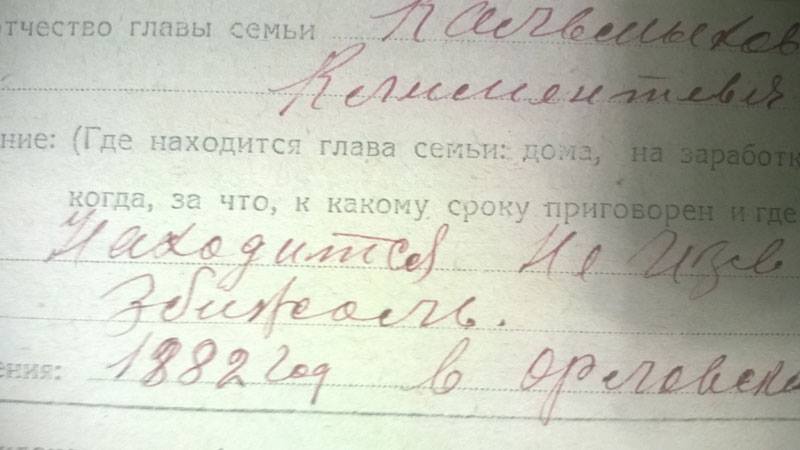 отчество главы семьи Калмыков
Климентевич
ние: (Где находится глава семьи: дома, на заработк
когда, за что, к какому сроку приговорен и где
Находится Не Изв
Збижаль.
ения: 1882 год в Орловско